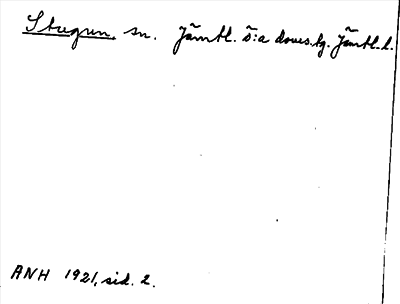 Stugun sn. Jämtl. ö:a doms.tg. Jämtl. l.
ANH 1921, sid. 2.